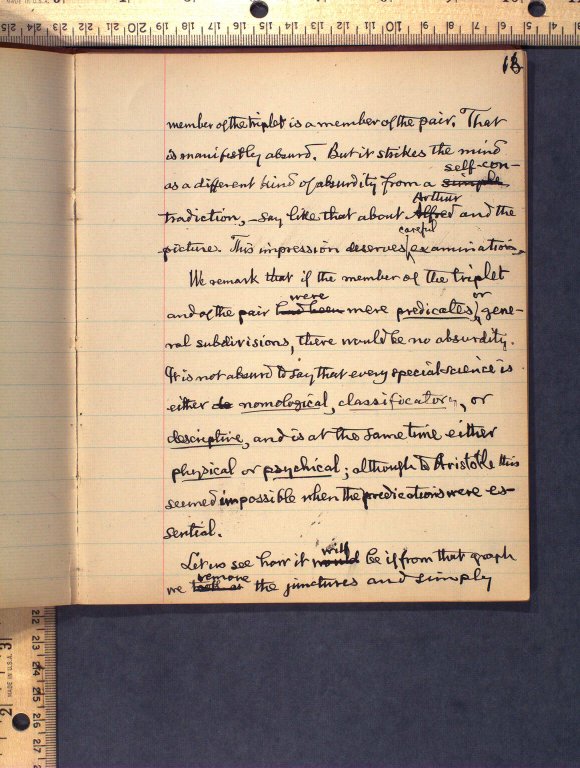 member of the triplet is a member of the pair. That
is manifestly absurd. But it strikes the mind
as a different kind of absurdity from a simple self-con-
tradiction, – say like that about Alfred Arthur and the
picture. This impression deserves careful examination.
We remark that if the member of the triplet
and of the pair had been were mere predicates, or gene-
ral subdivisions, there would be no absurdity.
It is not absurd to say that every special science is
either de nomological, classificatory, or
descriptive, and is at the same time either
physical or psychical; although to Aristotle this
seemed impossible when the predications were es-
sential.
Let us see how it would will be if from that graph
we look at remove the junctures and simply